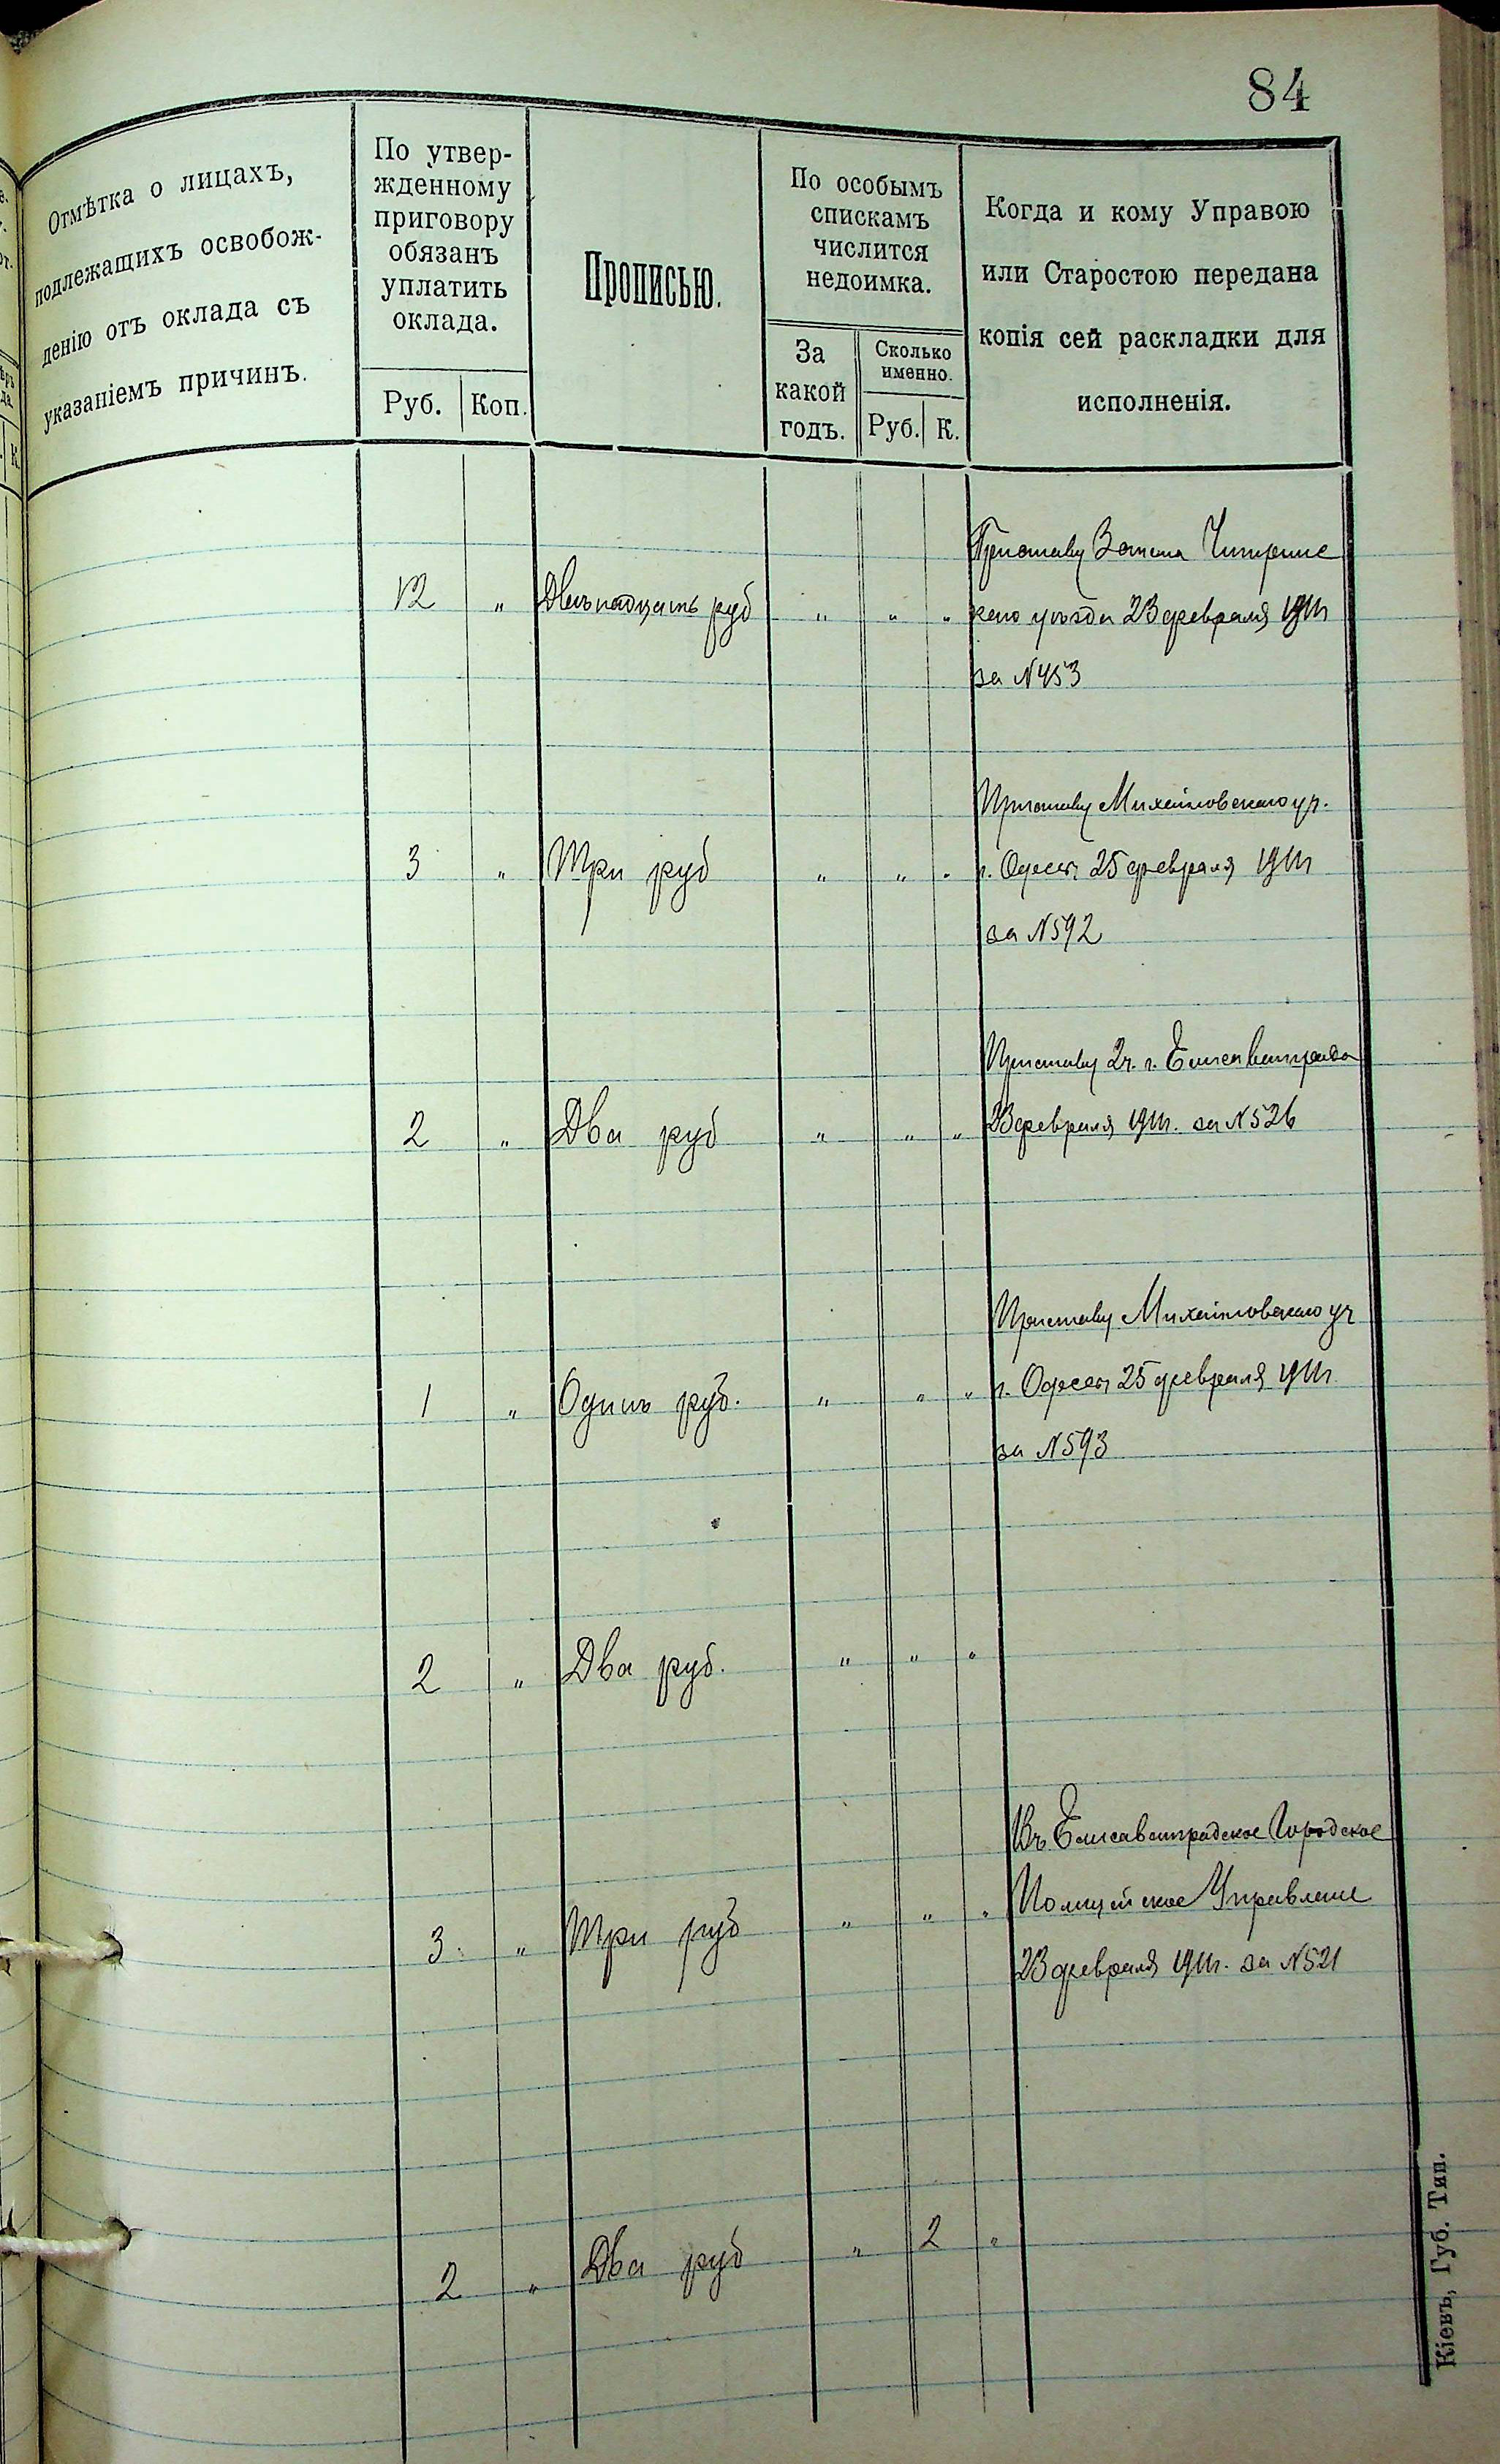 84
Отмѣтка о лицахъ,
подлежащихъ освобож-
денію отъ оклада съ
указаніемъ причинъ.
По утвер-
жденному
приговору
обязанъ
уплатить
оклада.
Руб. Коп.
Прописью.
По особымъ
спискамъ
числится
недоимка.
За
какой
годъ.
Сколько
именно.
Руб. К.
Когда и кому Управою
или Старостою передана
копія сей раскладки для
исполненія.
Приставу 3 стана Чигринс
12 " Двѣнадцать руб " " " каго уѣзда 23 февраля 1911г
за N453
Приставу Михайловскаго уч.
3 " Три руб " " " г. Одессы 25 февраля 1911г
за N592
Приставу 2ч. г. Елисаветграда
2 " Два руб " " " 23 февраля 1911г. за N526
Приставу Михайловскаго уч
1 " Одинъ руб. " " " г. Одессы 25 февраля 1911г.
за N593
2 " Два руб. " " "
Въ Елисаветградское Городское
3 " Три руб " " " Полицейское Управленіе
23 февраля 1911г. за N521
2 " Два руб " 2 "
Кіевъ, Губ. Тип.